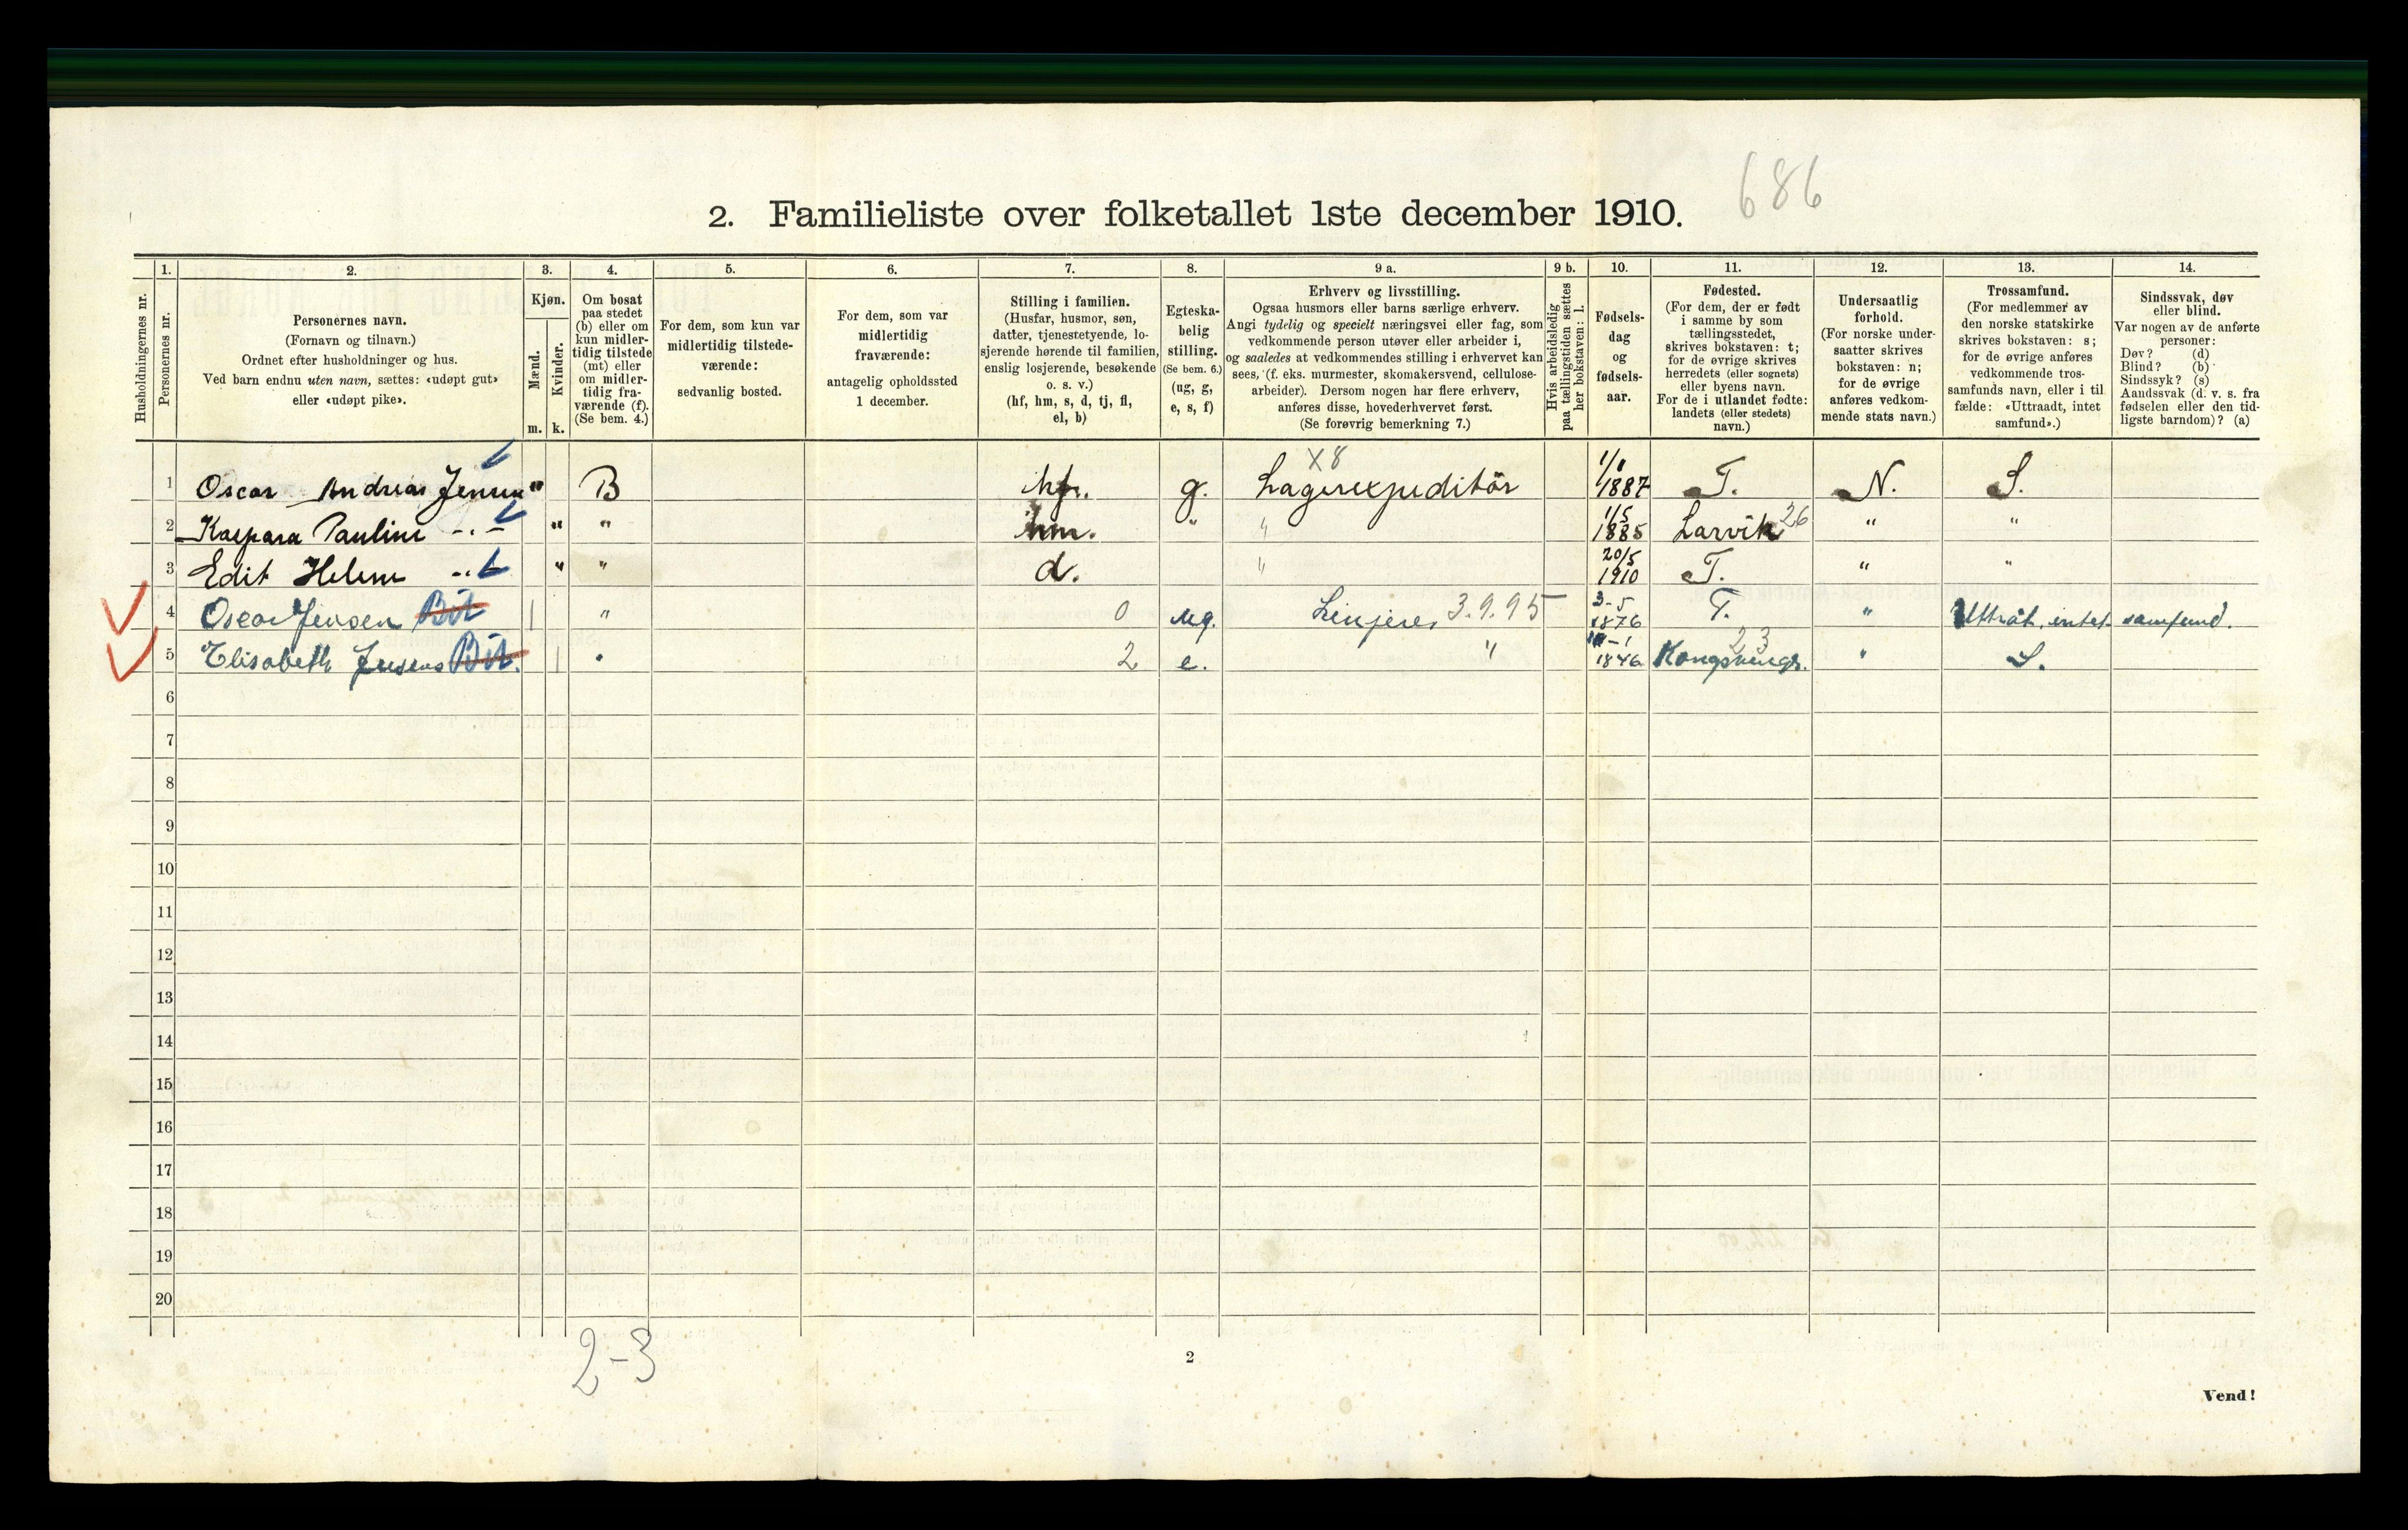 686
2. Familieliste over folketallet 1ste december 1910.
Husholdningernes nr.
1.
Personernes nr.
2.
Personernes navn.
(Fornavn og tilnavn.)
Ordnet efter husholdninger og hus.
Ved barn endnu uten navn, sættes: «udøpt gut»
eller «udøpt pike».
3.
Kjøn.
Mænd.
Kvinder.
m. k.
4.
Om bosat
paa stedet
(b) eller om
kun midler-
tidig tilstede
(mt) eller
om midler-
tidig fra-
værende (f).
(Se bem. 4.)
5.
For dem, som kun var
midlertidig tilstede-
værende:
sedvanlig bosted.
6.
For dem, som var
midlertidig
fraværende:
antagelig opholdssted
1 december.
7.
Stilling i familien.
(Husfar, husmor, søn,
datter, tjenestetyende, lo-
sjerende hørende til familien,
enslig losjerende, besøkende
o. s. v.)
(hf, hm, s, d, tj, fl,
el, b)
8.
Egteska-
belig
stilling.
(Se bem. 6.)
(ug, g,
e, s, f)
9 a.
Erhverv og livsstilling.
Ogsaa husmors eller barns særlige erhverv.
Angi tydelig og specielt næringsvei eller fag, som
vedkommende person utøver eller arbeider i,
og saaledes at vedkommendes stilling i erhvervet kan
sees, (f. eks. murmester, skomakersvend, cellulose-
arbeider). Dersom nogen har flere erhverv,
anføres disse, hovederhvervet først.
(Se forøvrig bemerkning 7.)
9 b.
Hvis arbeidsledig
paa tællingstiden sættes
her bokstaven: l.
10.
Fødsels-
dag
og
fødsels-
aar.
11.
Fødested.
(For dem, der er født
i samme by som
tællingsstedet,
skrives bokstaven: t;
for de øvrige skrives
herredets (eller sognets)
eller byens navn.
For de i utlandet fødte:
landets (eller stedets)
navn.)
12.
Undersaatlig
forhold.
(For norske under-
saatter skrives
bokstaven: n;
for de øvrige
anføres vedkom-
mende stats navn.)
13.
Trossamfund.
(For medlemmer av
den norske statskirke
skrives bokstaven: s;
for de øvrige anføres
vedkommende tros-
samfunds navn, eller i til
fælde: «Uttraadt, intet
samfund».)
14.
Sindssvak, døv
eller blind.
Var nogen av de anførte
personer:
Døv? (d)
Blind? (b)
Sindssyk? (s)
Aandssvak (d. v. s. fra
fødselen eller den tid-
ligste barndom)? (a)
1 Oscar Andreas Jensen " B hf. g. X8 Lagerexpeditör 1/1 1887 T. N. S.
2 Kaspara Pauline -.- " " hm. " " 1/5 1885 Larvik 26 " "
3 Edit Helene -.- " " d. " 20/5 1910 T. " "
4 Oscar Jensen Bit | " 0 ug. Linjerer 3.9.95 3-5 1876 T. " Uttråt, intet samfund.
5 Elisabeth Jensen Bit. | " 2 e. " -1 1846 Kongsvinger. 23 " S.
6
7
8
9
10
11
12
13
14
15
16
17
18
19
20
2-3
2
Vend!